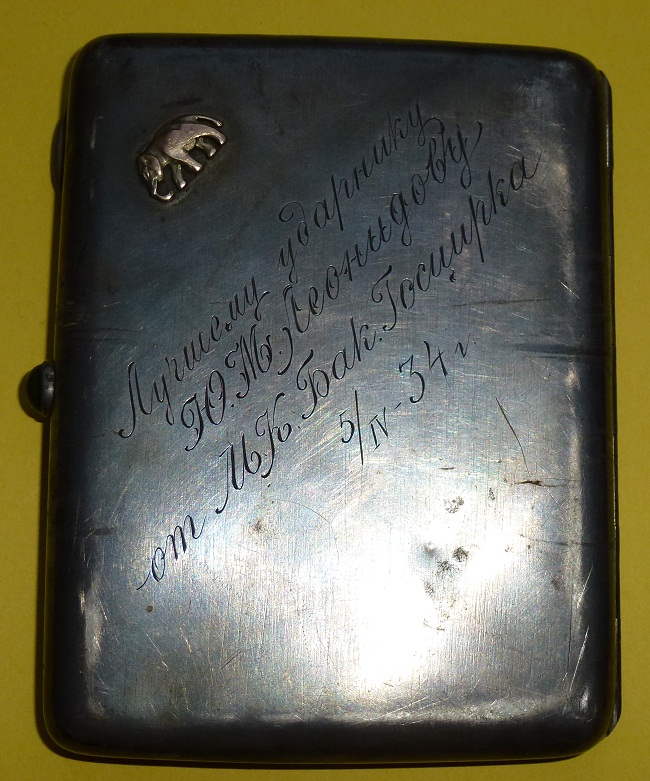 Лучшему ударнику
Ю.М. Леонидову
от М.К. Бак. Госцирка
5/IV-34 г.